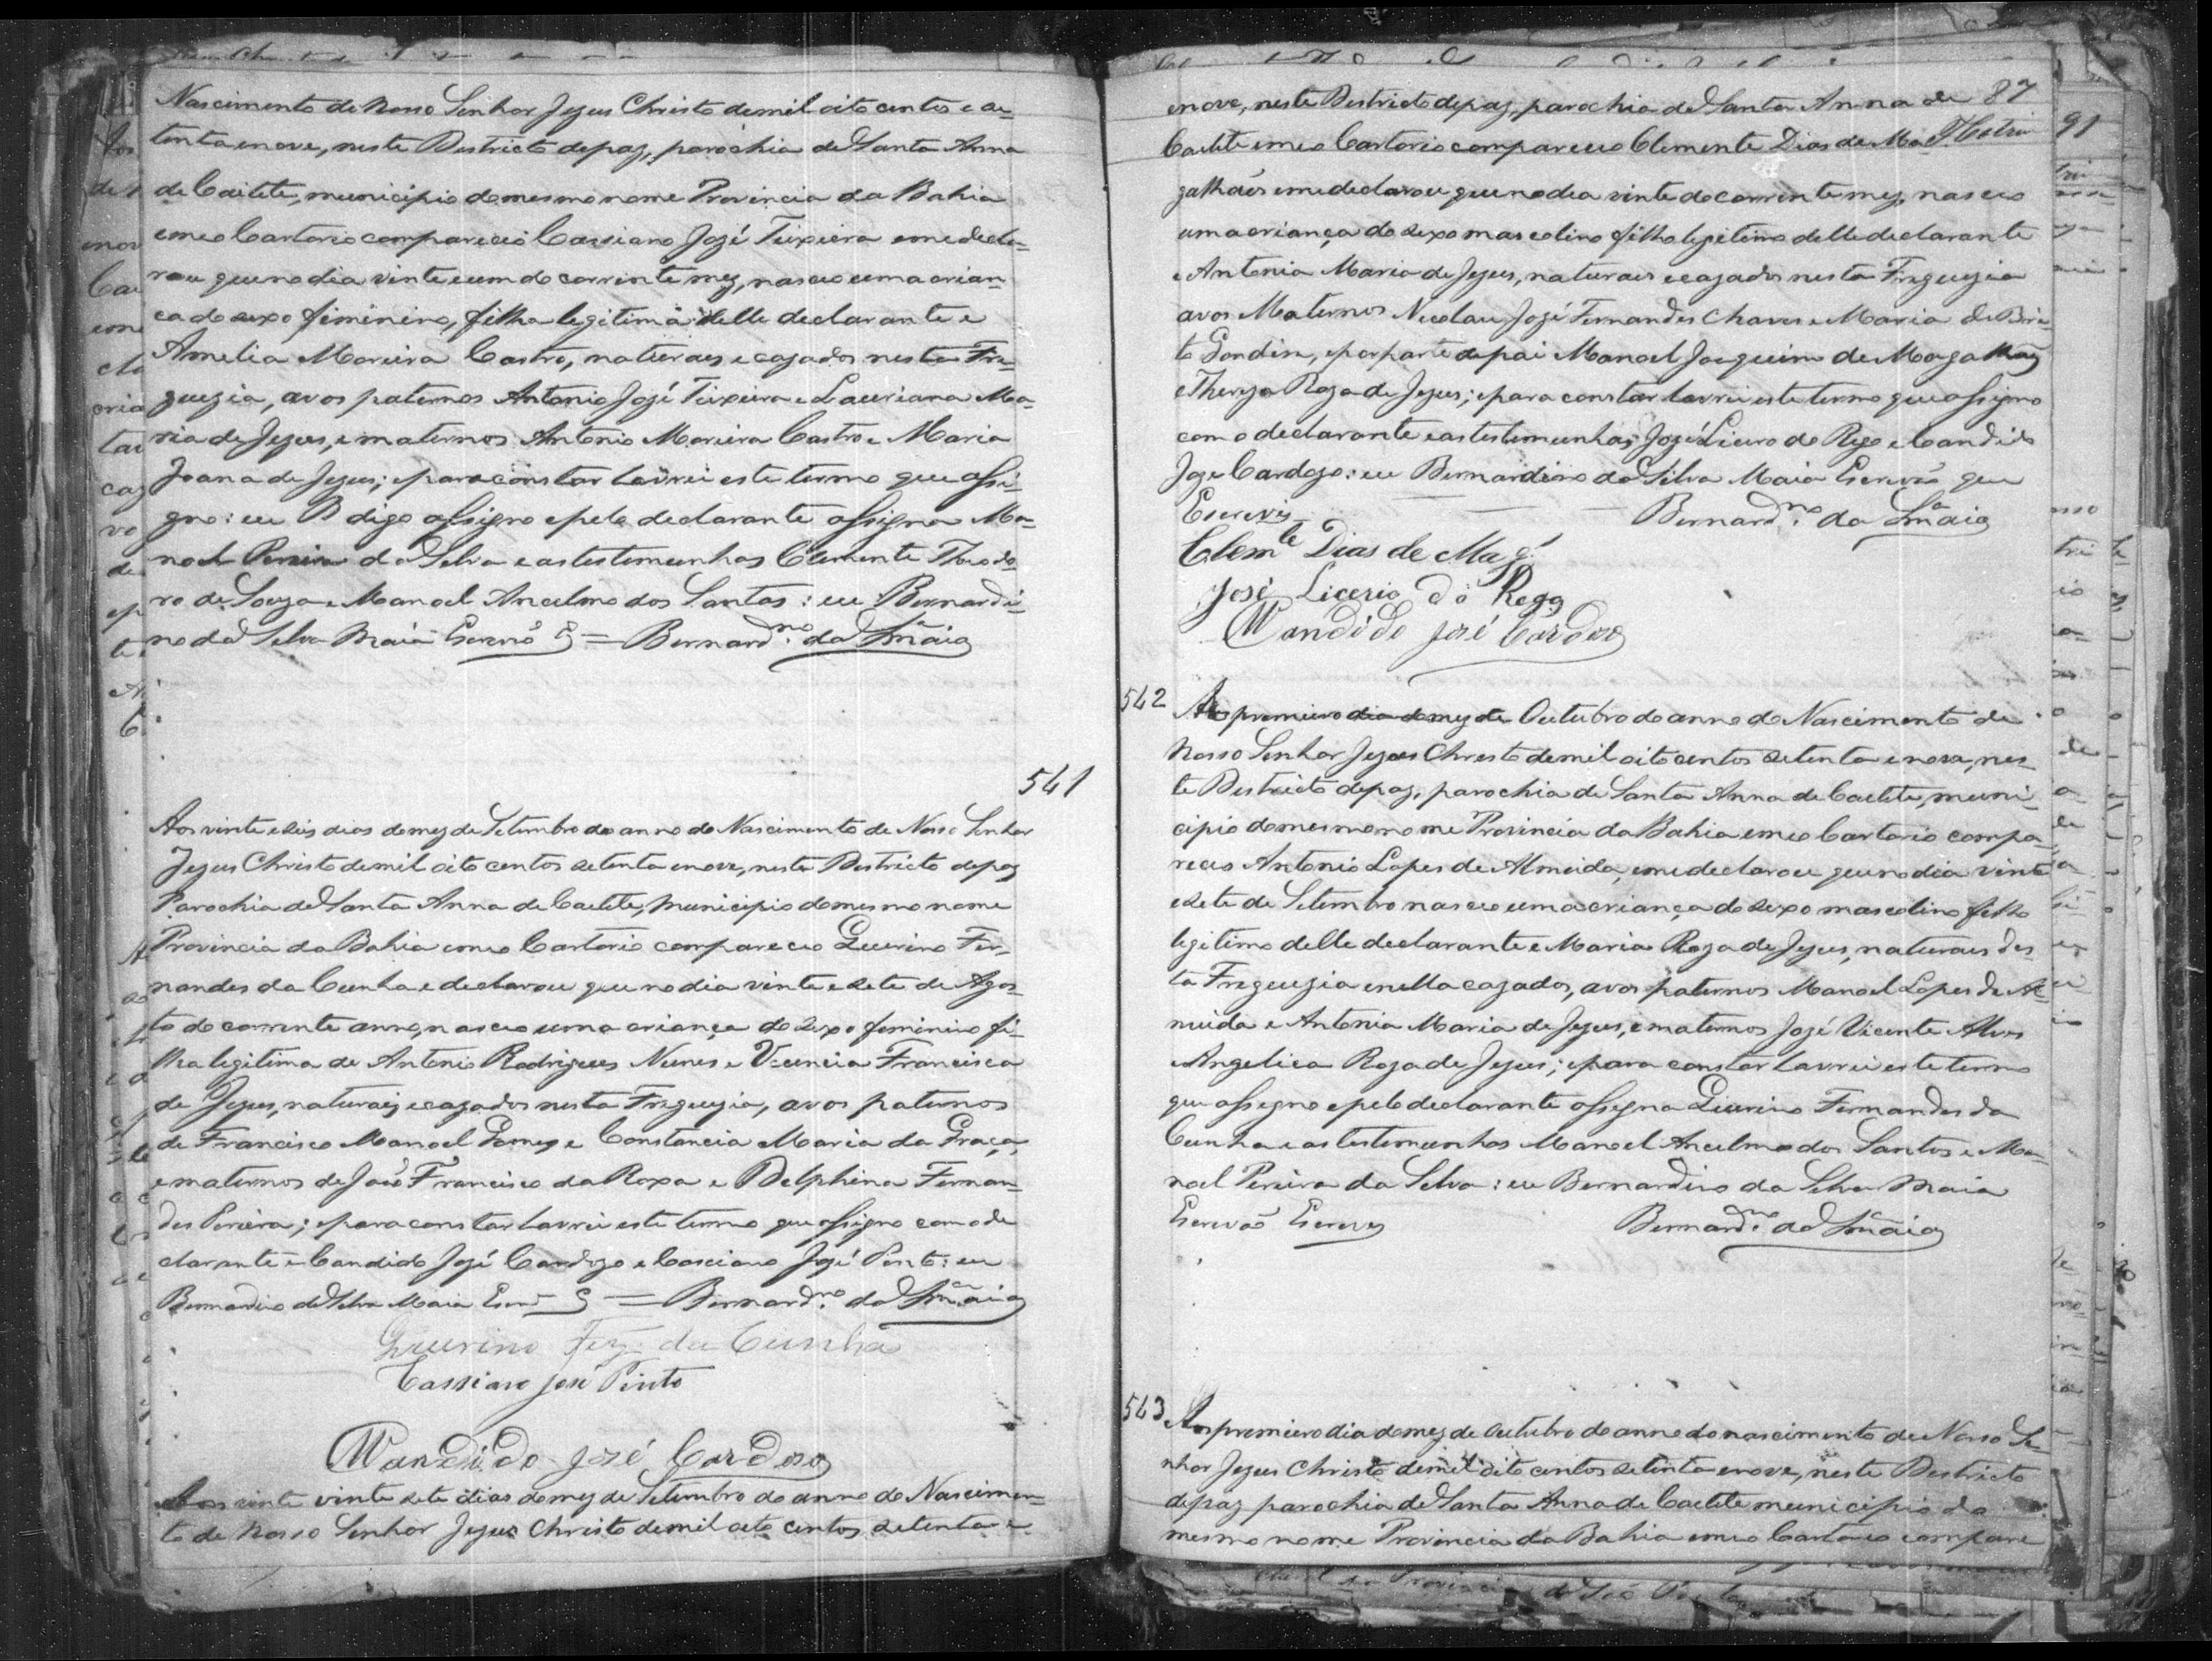 Nascimento de Nosso Senhor Jezus Christo de mil oito centos e se-
tenta e nove, neste Destricto de paz, parochia de Santa Anna
de Caitete, municipio do mesmo nome Provincia da Bahia
em meo Cartorio compareceo Cassiano Jozé Teixeira e me decla-
rou que no dia vinte e um do corrente mez, nasceo uma crian-
ca do sexo feminino, filha legitima delle declarante e
Amelia Moreira Castro, naturaes e cazados nesta Fre-
guezia, avos paternos Antonio Jozé Teixeira e Lauriana Ma-
ria de Jezus, e maternos Antonio Moreira Castro e Maria
Joana de Jezus; e para constar lavrei este termo que assi-
gno: eu B digo assigno e pelo declarante assigna Ma-
noel Pereira da Silva e as testemunhas Clemente Theodo-
ro de Souza e Manoel Ancelmo dos Santos: eu Bernardi-
no da Silva Maia Escrivão = Bernardno. da Sa Maia
541
Aos vinte e seis dias do mez de Setembro do anno do Nascimento de Nosso Senhor
Jezus Christo de mil oito centos setenta e nove, neste Destricto de paz
Parochia de Santa Anna de Caetete, Municipio do mesmo nome
Provincia da Bahia em meo Cartorio compareceo Quirino Fer-
nandes da Cunha e declarou que no dia vinte e sete de Agos-
to do corrente anno, nasceo uma criança do sexo feminino fi-
lha legitima de Antonio Rodrigues Nunes e Vicencia Francisca
de Jezus, naturaes e cazados nesta Freguezia, avos paternos
de Francisco Manoel Gomes e Constancia Maria da Graça,
e maternos de João Francisco da Roxa e Delphina Fernan-
des Pereira; e para constar lavrei este termo que assigno com o de
clarante e Candido Jozé Cardozo e Casciano Jozé Pinto: eu
Bernardino da Silva Maia Escrm = Bernardno. da Sa Maia
Querino Fez. da Cunha
Cassiano José Pinto
Candido José Cardoso
Aos vinte vinte sete dias do mez de Setembro do anno do Nascimen-
to de Nosso Senhor Jezus Christo de mil oito centos setenta e
87
enove, neste Destricto de paz, parochia de Santa Anna de
Caetete em meo Cartorio compareceo Clemente Dias de Ma
galhães e me declarou que no dia vinte do corrente mez, nasceo
uma criança do sexo mascolino filho legitimo delle declarante
e Antonia Maria de Jezus, naturaes e cazados nesta Freguezia
avos Maternos Nicolau Jozé Fernandes Chaves e Maria de Bri-
to Gondim, e por parte de pai Manoel Joaquim de Magalhães
e Thereza Roza de Jezus; e para constar lavrei este termo que assigno
com o declarante e as testemunhas Jozé Licero do Rego e Candido
Joze Cardozo: eu Bernardino da Silva Maia Escrivão que
Escrevi Bernardno. da Sa Maia
Clemte Dias de Mag.
José Licerio do Rego
Candido José Cardoso
542
Aos premeiro dia do mez de Outubro do anno do Nascimento de
Nosso Senhor Jezus Christo de mil oito centos setenta e nove, nes-
te Destricto de paz, parochia de Santa Anna de Caetete, muni-
cipio do mesmo nome Provincia da Bahia em meo Cartorio compa-
receo Antonio Lopes de Almeida, e me declarou que no dia vinte
e sete de Setembro nasceo uma criança do sexo mascolino filho
legitimo delle declarante e Maria Roza de Jezus, naturaes des-
ta Freguezia e nella cazados, avos paternos Manoel Lopes de Al-
meida e Antonia Maria de Jezus, e maternos Jozé Vicente Alves
e Angelica Roza de Jezus; e para constar lavrei este termo
que assigno e pelo declarante assigna Querino Fernandes da
Cunha e as testemunhas Manoel Ancelmo dos Santos e Ma-
noel Pereira da Silva: eu Bernardino da Silva Maia
Escrivão Escrevy Bernardno. da Sa Maia
543
Aos premeiro dia do mez de Outubro do anno do nascimento de Nosso Se-
nhor Jezus Christo de mil oito centos setenta e nove, neste Destricto
de paz parochia de Santa Anna de Caetete municipio do
mesmo nome Provincia da Bahia em meo Cartorio compare
91